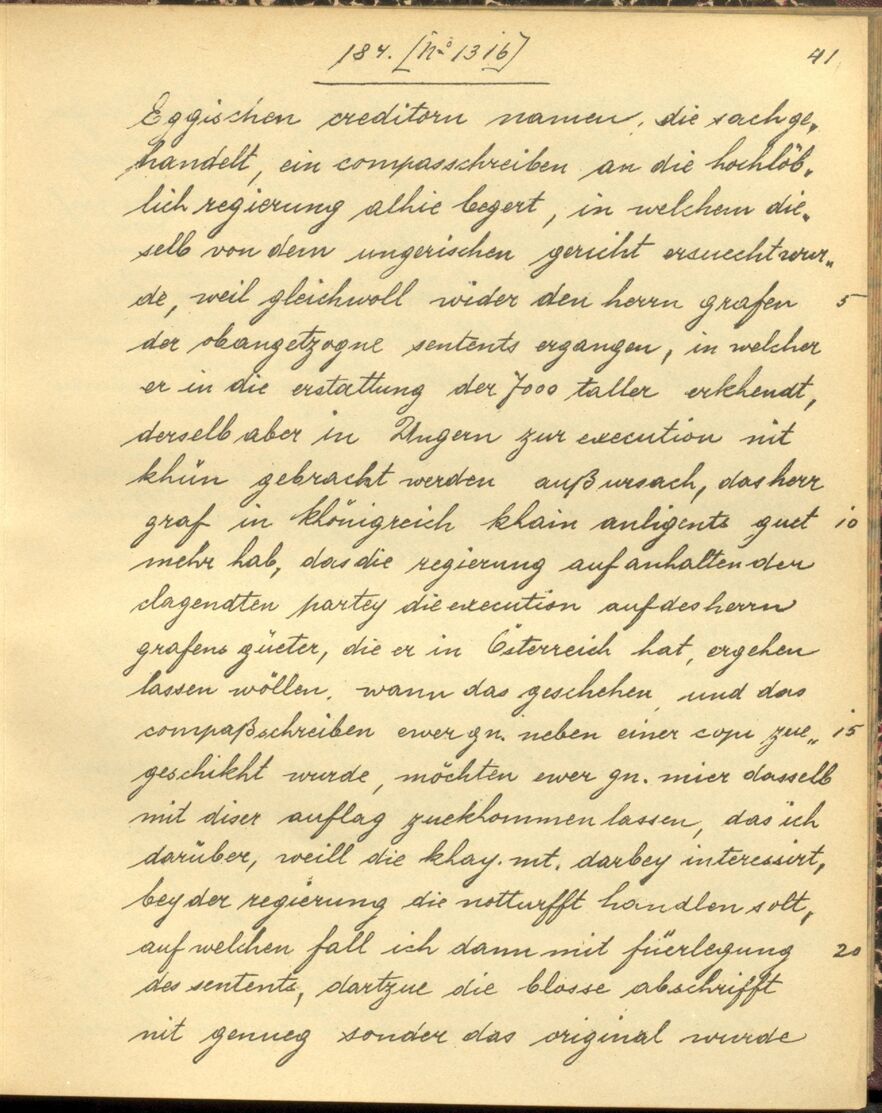 184. [No 1316]
41
Eggischen creditorn namen, die sach ge„
handelt, ein compasschreiben an die hochlöb„
lich regierung alhie begert, in welchem die„
selb von dem ungerischen gericht ersuecht wur„
de, weil gleichwoll wider den herrn grafen 5
der obangetzogne sentents ergangen, in welcher
er in die erstattung der 7000 taller erkhendt,
derselb aber in Ungern zur execution nit
khün gebracht werden auß ursach, das herr
graf in khönigreich khain anligents guet 10
mehr hab, das die regierung auf anhalten der
clagendten partey die execution auf des herrn
grafens güeter, die er in Österreich hat, ergehen
lassen wöllen. wann das geschehen und das
compaßschreiben ewer gn. neben einer copi zue„ 15
geschikht wurde, möchten ewer gn. mier dasselb
mit diser auflag zuekhommen lassen, das ich
darüber, weill die khay. mt. darbey interessirt,
bey der regierung die notturfft handlen solt,
auf welchen fall ich dann mit füerlegung 20
des sentents, dartzue die blosse abschrifft
nit genueg sonder das original wurde